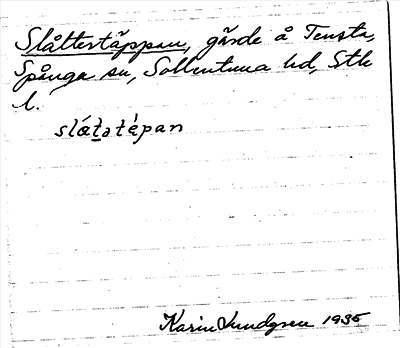 Slåttertäppan, gärde å Tensta,
Spånga sn, Sollentuna hd, Sth
l.
slátatépan
Karin Lundgren 1935